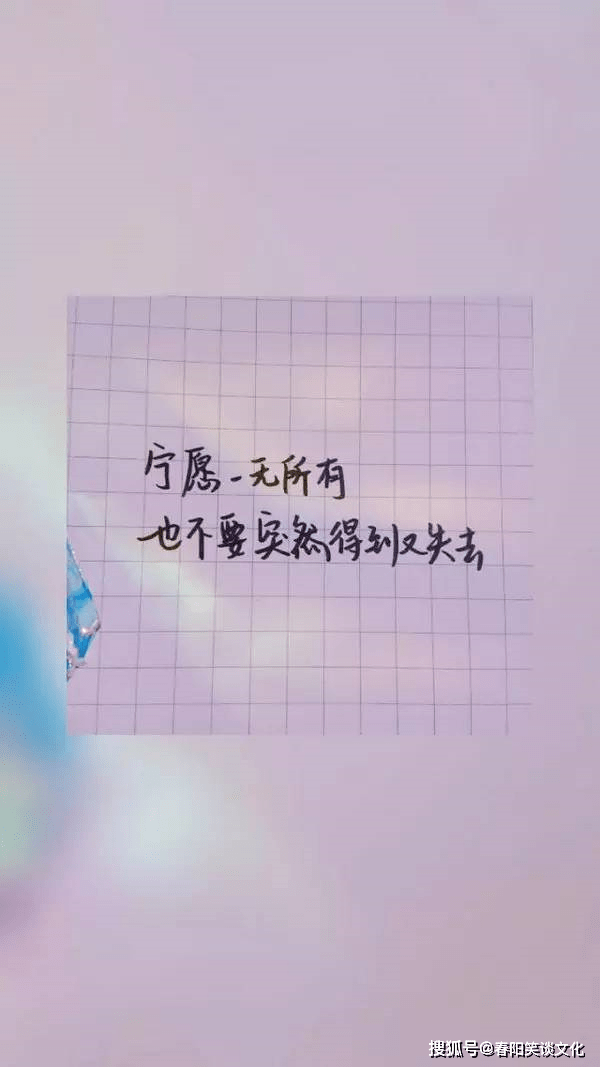 宁愿一无所有
也不要突然得到又失去
搜狐号@春阳笑谈文化